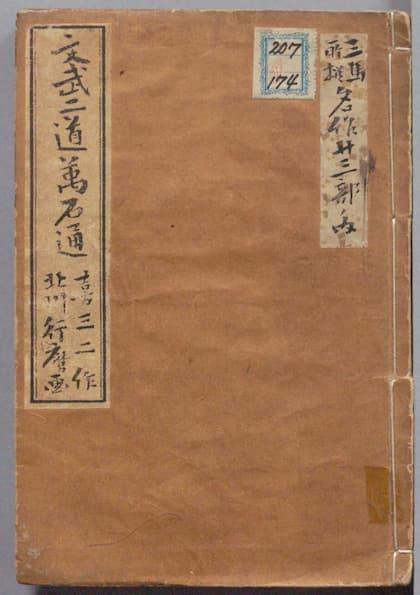 三馬
所撰
名作廿三部内
207
174
文武二道萬石通
喜三二作
北川行麿画